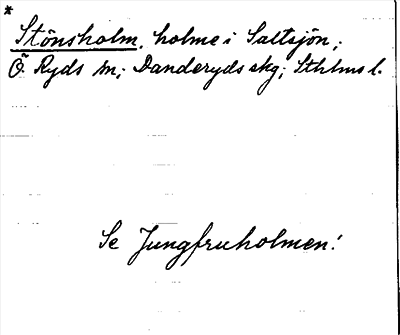 *
Stönsholm, holme i Saltsjön;
Ö. Ryds sn; Danderyds skg; Sthlms l.
Se Jungfruholmen!